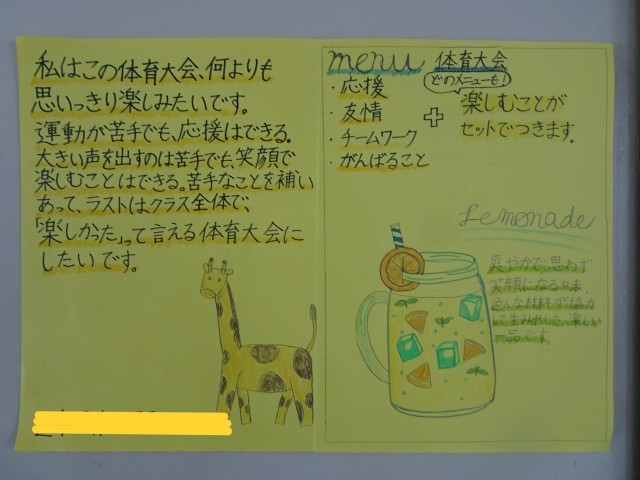 私はこの体育大会、何よりも
思いっきり楽しみたいです。
運動が苦手でも、応援はできる。
大きい声を出すのは苦手でも、笑顔で
楽しむことはできる。苦手なことを補い
あって、ラストはクラス全体で、
「楽しかった」って言える体育大会に
したいです。
menu 体育大会
どのメニューも!
・応援
・友情
・チームワーク
・がんばること
+
楽しむことが
セットでつきます。
Lemonade
爽やかで思わず
笑顔になる口味。
色んな材料が協力
して生みだした、楽しい
一品です。